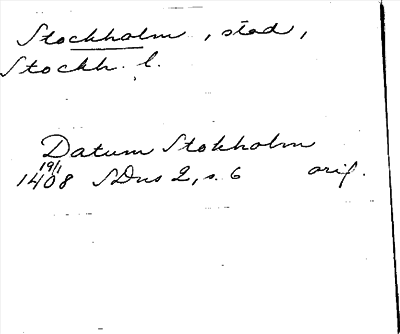 Stockholm, stad,
Stockh. l.
Datum Stokholm
19/1
1408 SDns 2, s. 6 orig.